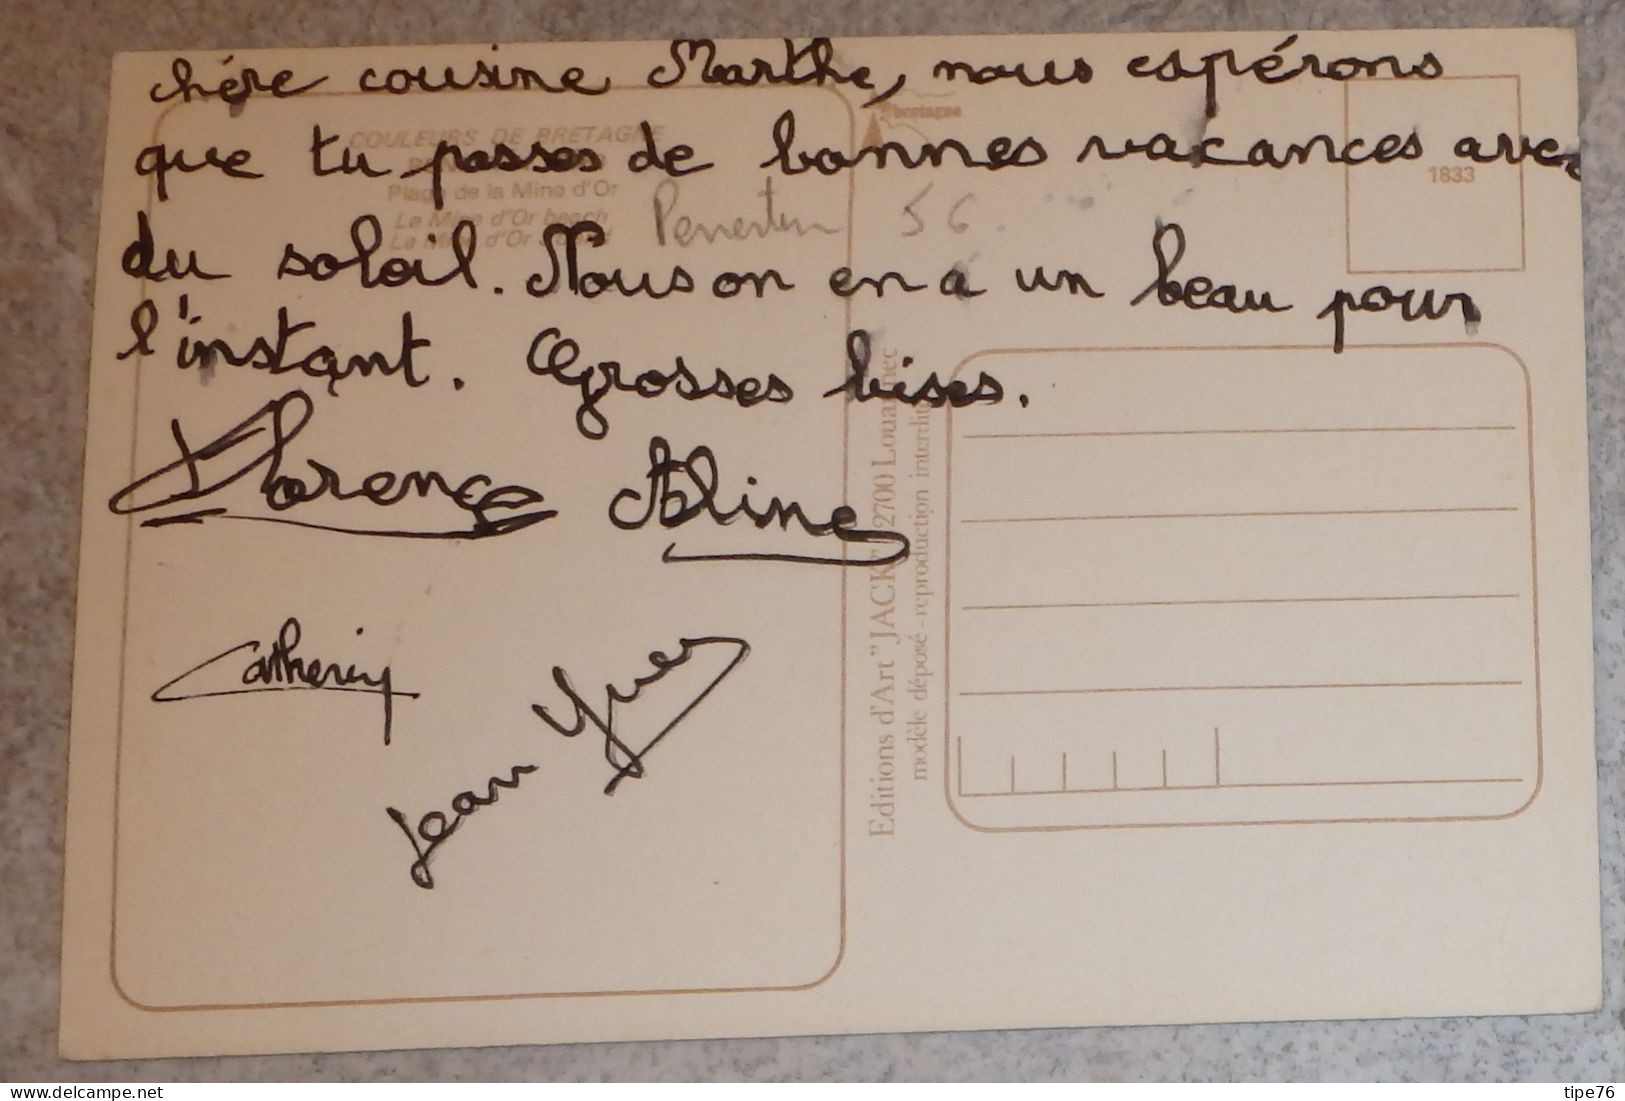 chére cousine Marthe, nous espérons
que tu passes de bonnes vacances avec
du soleil. Nous on en a un beau pour
l'instant. Grosses bises.
Florence Aline
Catherine
Jean Yves
COULEURS DE BRETAGNE
Plage de la Mine d'Or
La Mine d'Or beach
La Mine d'Or
Penestin 56.
bretagne
1833
Editions d'Art "JACK" 2700 Louannec
modèle déposé - reproduction interdite
tipe76